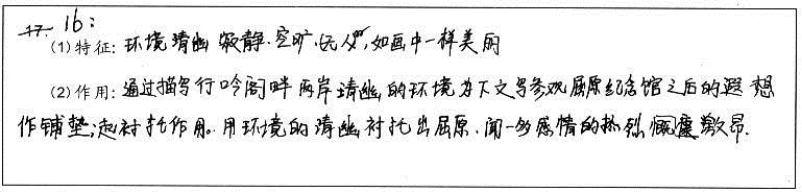 17. 16:
(1)特征: 环境清幽 寂静.空旷.无人,如画中一样美丽
(2)作用: 通过描写行吟阁畔 两岸清幽的环境为下文写参观屈原纪念馆之后的遐想
作铺垫;起衬托作用。用环境的清幽衬托出屈原.闻一多感情的热烈 激昂.